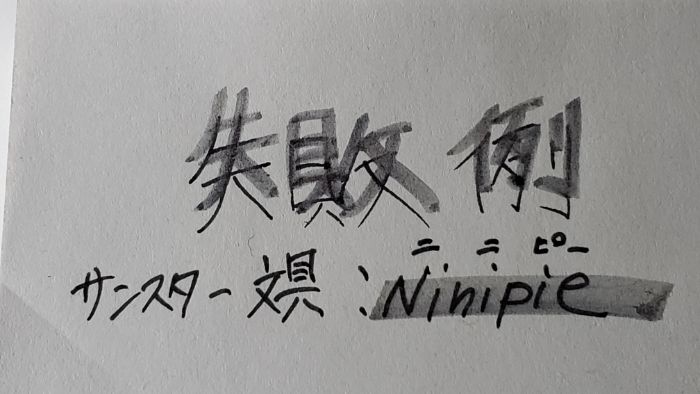 失敗例
ニニピー
サンスター文具：Ninipie